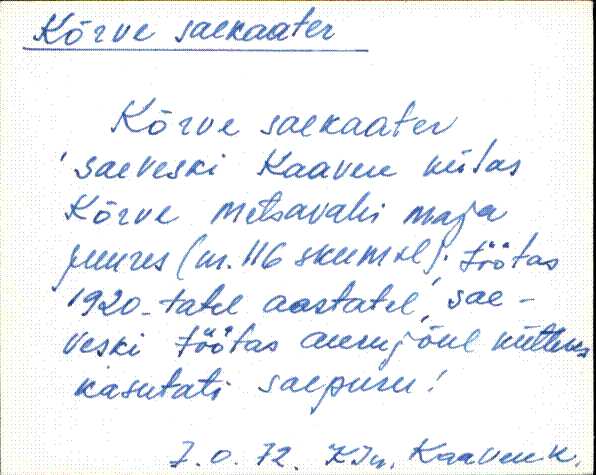 Kõrve saekaater
Kõrve saekaater
saeveski Kaavere külas
Kõrve metsavahi maja
juures (nr. 116 skeemil). Töötas
1920-tatel aastatel, sae-
veski töötas aurujõul kütteks
kasutati saepuru!
J. O. 72. Kaavere k.